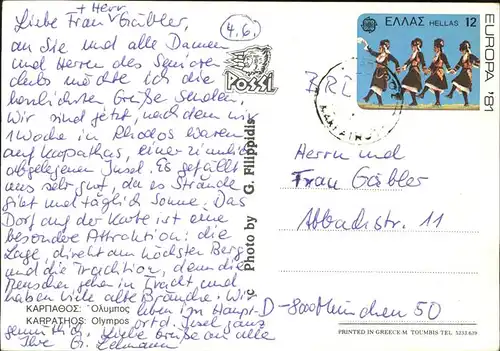 + Herr
Liebe Frau Gäbler,
an Sie und alle Damen
und Herren des Senioren-
clubs möchte ich die
herzlichsten Grüße senden.
Wir sind jetzt, nachdem wir
1 Woche in Rhodos waren
auf Karpathos, einer ziemlich
abgelegenen Insel. Es gefällt
uns sehr gut, da es Strände
gibt und täglich Sonne. Das
Dorf auf der Karte ist eine
besondere Attraktion: die
Lage, direkt am höchsten Berg
und die Tradition, denn die
Menschen gehen in Tracht und
haben viele alte Bräuche. Wir
leben im Haupt-
ort d. Insel ganz
gemütlich. Liebe Grüße an alle
Ihre G. Lehmann
(4.6.)
POSSI
c Photo by G. Filippidis
ΚΑΡΠΑΘΟΣ: Όλυμπος
KARPATHOS: Olympos
ΕΛΛΑΣ HELLAS 12
EUROPA '81
BRD
Herrn und
Frau Gäbler
Abbachstr. 11
D-8000 München 50
PRINTED IN GREECE-M TOUMBIS TEL. 3233 639